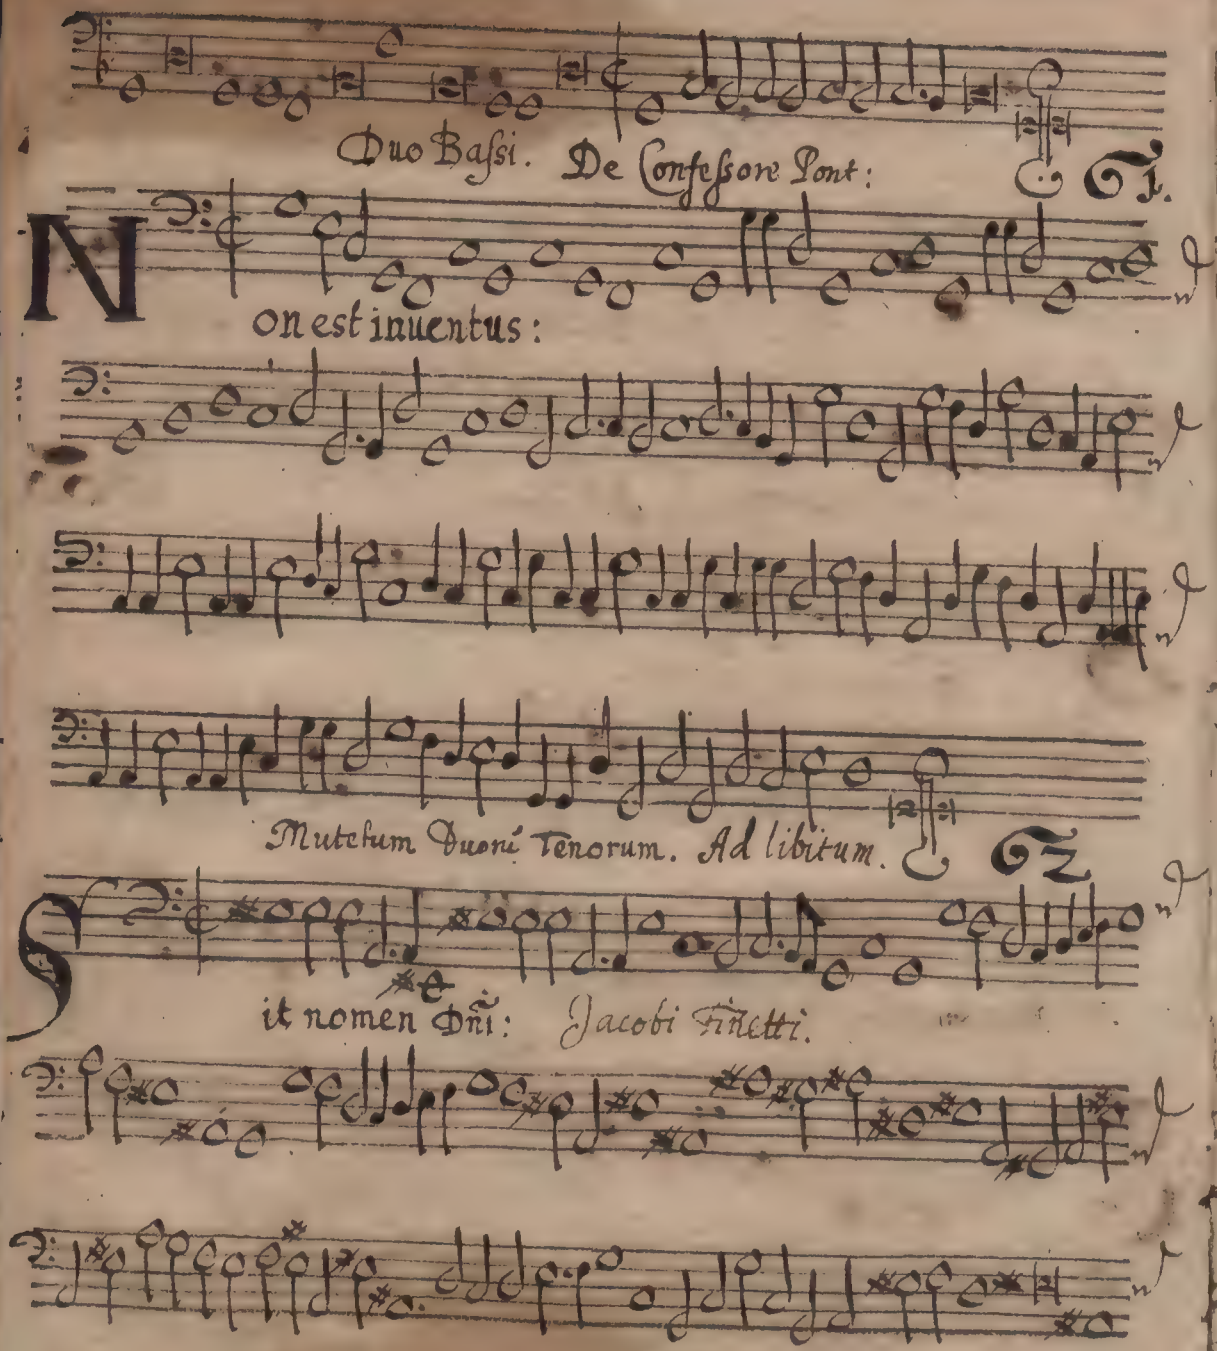 Duo Baſsi. De Confeſsore Pont: 1.
Non est inuentus:
Mutetum Duorũ Tenorum. Ad libitum. 2
Sit nomen Dñi: Jacobi Finetti.